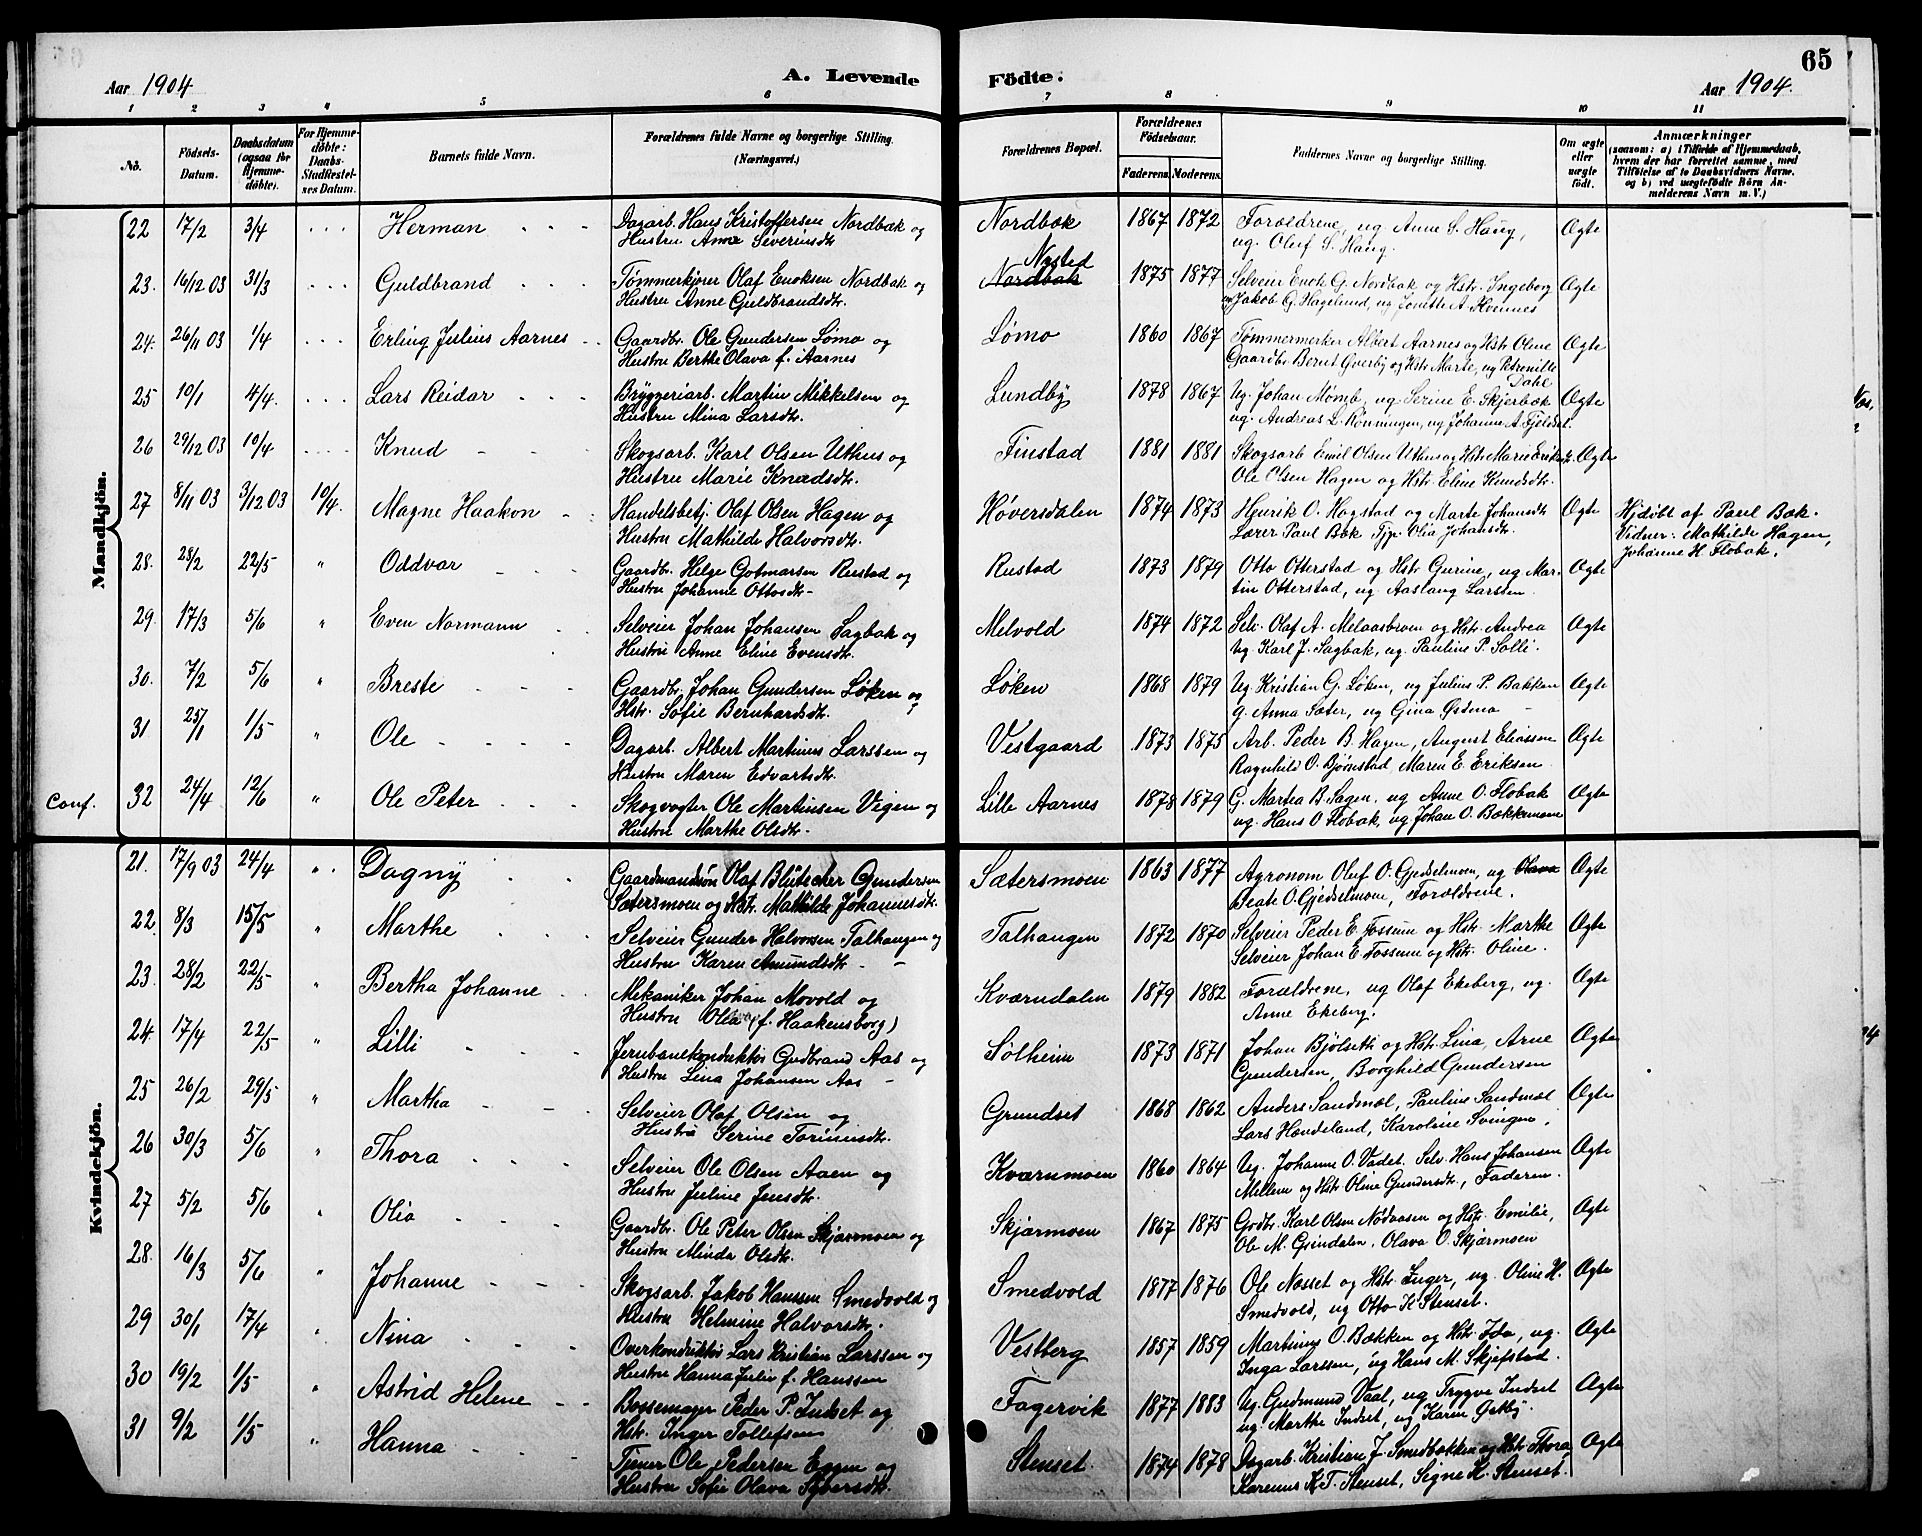 Aar 1904
A. Levende
Födte.
Aar 1904.
65
1 2 3 4 5 6 7 8 9 10 11
No.
Födsels-Datum.
Daabsdatum (ogsaa for Hjemmedöbte).
For Hjemmedöbte: Daabs-Stadfæstelses Datum.
Barnets fulde Navn.
Forældrenes fulde Navne og borgerlige Stilling. (Næringsvei.)
Forældrenes Bopæl.
Forældrenes Födselsaar.
Faderens. Moderens.
Faddernes Navne og borgerlige Stilling.
Om ægte eller uægte födt.
Anmærkninger (saasom: a) i Tilfælde af Hjemmedaab, hvem der har forrettet samme, med Tilföielse af to Daabsvidners Navne, og b) ved uægtefödte Börn Anmelderens Navn m. V.)
Mandkjön.
22 17/2 3/4 Herman Dagarb. Hans Kristoffersen Nordbæk og Nordbæk 1867 1872 Forældrene, ug. Anne S. Haug, Ægte
Hustru Anne Severinsdt. ug. Oluf S. Haug.
Nysted
23. 16/12 03 31/3 Guldbrand Tømmerkjører Olaf Enoksen Nordbak og Nordbak 1875 1877 Selveier Enok G. Nordbak og Hstr. Ingeborg Ægte
Hustru Anne Guldbrandsdt. ug Jakob G. Hagelund, ug Jonette A. Hvernes
24. 26/11 03 1/4 Erling Julius Aarnes Gaardbr. Ole Gundersen Lømo og Lømo 1860 1867 Tømmermerker Albert Aarnes og Hstr. Oline Ægte
Hustru Berthe Olava f. Aarnes Gaardbr. Bernt Gverby og Hstr. Marte, ug Petronille Dahl
25 10/1 4/4. Lars Reidar Bryggeriarb. Martin Mikkelsen og Lundby 1878 1867 Ug. Johan Momb, ug Serine E. Skjerbæk Ægte
Hustru Mina Larsdt. ug. Andreas L. Rønningen, ug Johanne A. Fjeldset.
26 29/12 03 10/4 Knud Skogsarb. Karl Olsen Uthus og Finstad 1881 1881 Skogsarb Emil Olsen Uthus og Hstr. Marie Eriksdt. Ægte
Hustru Marie Knudsdt. Ole Olsen Hagen og Hstr. Eline Knudsdt.
27 8/11 03 3/12 03 10/4. Magne Haakon Handelsbetj. Olaf Olsen Hagen og Høversdalen 1874 1873 Henrik O. Hagstad og Marte Johansdt Ægte Hjdøbt af Paul Bæk.
Hustru Mathilde Halvorsdt. Lærer Paul Bæk Tjp. Olia Johansdt. Vidner: Mathilde Hagen,
Johanne H. Flobak.
28. 28/2 22/5 " Oddvar Gaardbr. Helge Gotmarsen Rustad og Rustad 1873 1879 Otto Otterstad og Hstr. Gurine, ug Mar- Ægte
Hustru Johanne Ottosdt. tin Otterstad, ug. Aaslaug Larsten.
29. 17/3 5/6 " Even Normann Selveier Johan Johansen Sagbak og Melvold 1874 1872 Selv. Olaf A. Melaasbroen og Hstr. Andrea Ægte
Hustru Anne Eline Evensdt. Ug. Karl J. Sagbak, ug. Pauline P. Solli.
30. 7/2 5/6 " Breste Gaardbr. Johan Gundersen Løken og Løken 1868 1879 Ug. Kristian G. Løken, ug Julius P. Bakken Ægte
Hstr. Sofie Bernhardsdt. g. Anna Sæter, ug Gina Østmo
31 25/1 1/5 " Ole Dagarb. Albert Martinus Larsen og Vestgaard 1873 1875 Arb. Peder B. Hagen, August Eliassen Ægte
Hustru Maren Edvartsdt. Ragnhild O. Bjørnstad, Maren E. Eriksen
Conf. 32 24/4 12/6 " Ole Peter Skogvogter Ole Martinsen Vigen og Lille Aarnes 1878 1879 G. Martea B. Sagen, ug Anne O. Flobak Ægte
Hustru Marthe Olsdt. ug. Hans O Flobak, ug Johan O. Bækkemoen
Kvindekjön.
21. 17/9 03 24/4 " Dagny Gaardmandssøn Olaf Blütscher Gundersen Sætersmoen 1863 1877 Agronom Oluf O. Gjedselmoen, ug Olava Ægte
Sætersmoen og Hstr. Mathilde Johannesdt. Beate O. Gjedselmoen, Forældrene.
22. 8/3 15/5 " Marthe Selveier Gunder Halvorsen Talhaugen og Talhaugen 1872 1870 Selveier Peder E. Fossum og Hstr. Marthe Ægte
Hustru Karen Amundsdt. Selveier Johan E. Fossum og Hstr. Oline.
23. 28/2 22/5 " Bertha Johanne Mekaniker Johan Movold og Kværndalen 1879 1882 Forældrene, ug Olaf Ekeberg, ug. Ægte
Hustru Olia (f. Haakensborg) Anne Ekeberg.
24. 17/4 22/5 " Lilli Jernbanekonduktør Gudbrand Aas og Solheim 1873 1871 Johan Bjølseth og Hstr. Lina, Arne Ægte
Hustru Lina Johansen Aas Gundersen, Borghild Gundersen
25 26/2 29/5 " Martha Selveier Olaf Olsen og Grundset 1868 1862 Anders Sandmæl, Pauline Sandmæl Ægte
Hustru Serine Torinusdt. Lars Hændeland, Karoline Svingen.
26 30/3 5/6 " Thora Selveier Ole Olsen Aaen og Kværnmoen 1860 1864 Ug. Johanne O. Vadet. Selv. Hans Johansen Ægte
Hustru Juline Jensdt. Millem og Hstr. Oline Gundersdt., Faderen.
27 5/2 5/6 " Olia Gaardbr. Ole Peter Olsen Skjærmoen og Skjærmoen 1867 1875 Grdbr. Karl Olsen Nødvaasen og Hstr. Emilie, Ægte
Hustru Minda Olsdt. Ole M. Grindalen, Olava O. Skjærmoen
28. 16/3 5/6 " Johanne Skogsarb. Jakob Hanssen Smedvold og Smedvold 1877 1876 Ole Næsset og Hstr. Inger, ug. Oline H. Ægte
Hustru Helmine Halvorsdt. Smedvold, ug Otto K. Stenset.
29 30/1 17/4 " Nina Overkonduktør Lars Kristian Larssen og Vestberg 1857 1859 Martinus O. Bækken og Hstr. Ida, ug. Ægte
Hustru Hanna Julie f. Hanssen Inga Larssen, ug Hans M. Skjefstad.
30 19/2 1/5 " Astrid Helene Bossemager Peder P. Indset og Fagervik 1877 1883 Ug. Gudmund Vaal, ug Trygve Indset Ægte
Hstr. Inger Tollefsen ug. Marthe Indset, ug Karen Østby.
31 9/2 1/5 " Hanna Tømr Ole Pedersen Eggen og Stenset. 1874 1878 Dagarb. Kristian J. Smedbækken og Hstr. Thora Ægte
Hustru Sofie Olava Syversdt. Karenus K. T. Stenset, Signe K. Stenset.